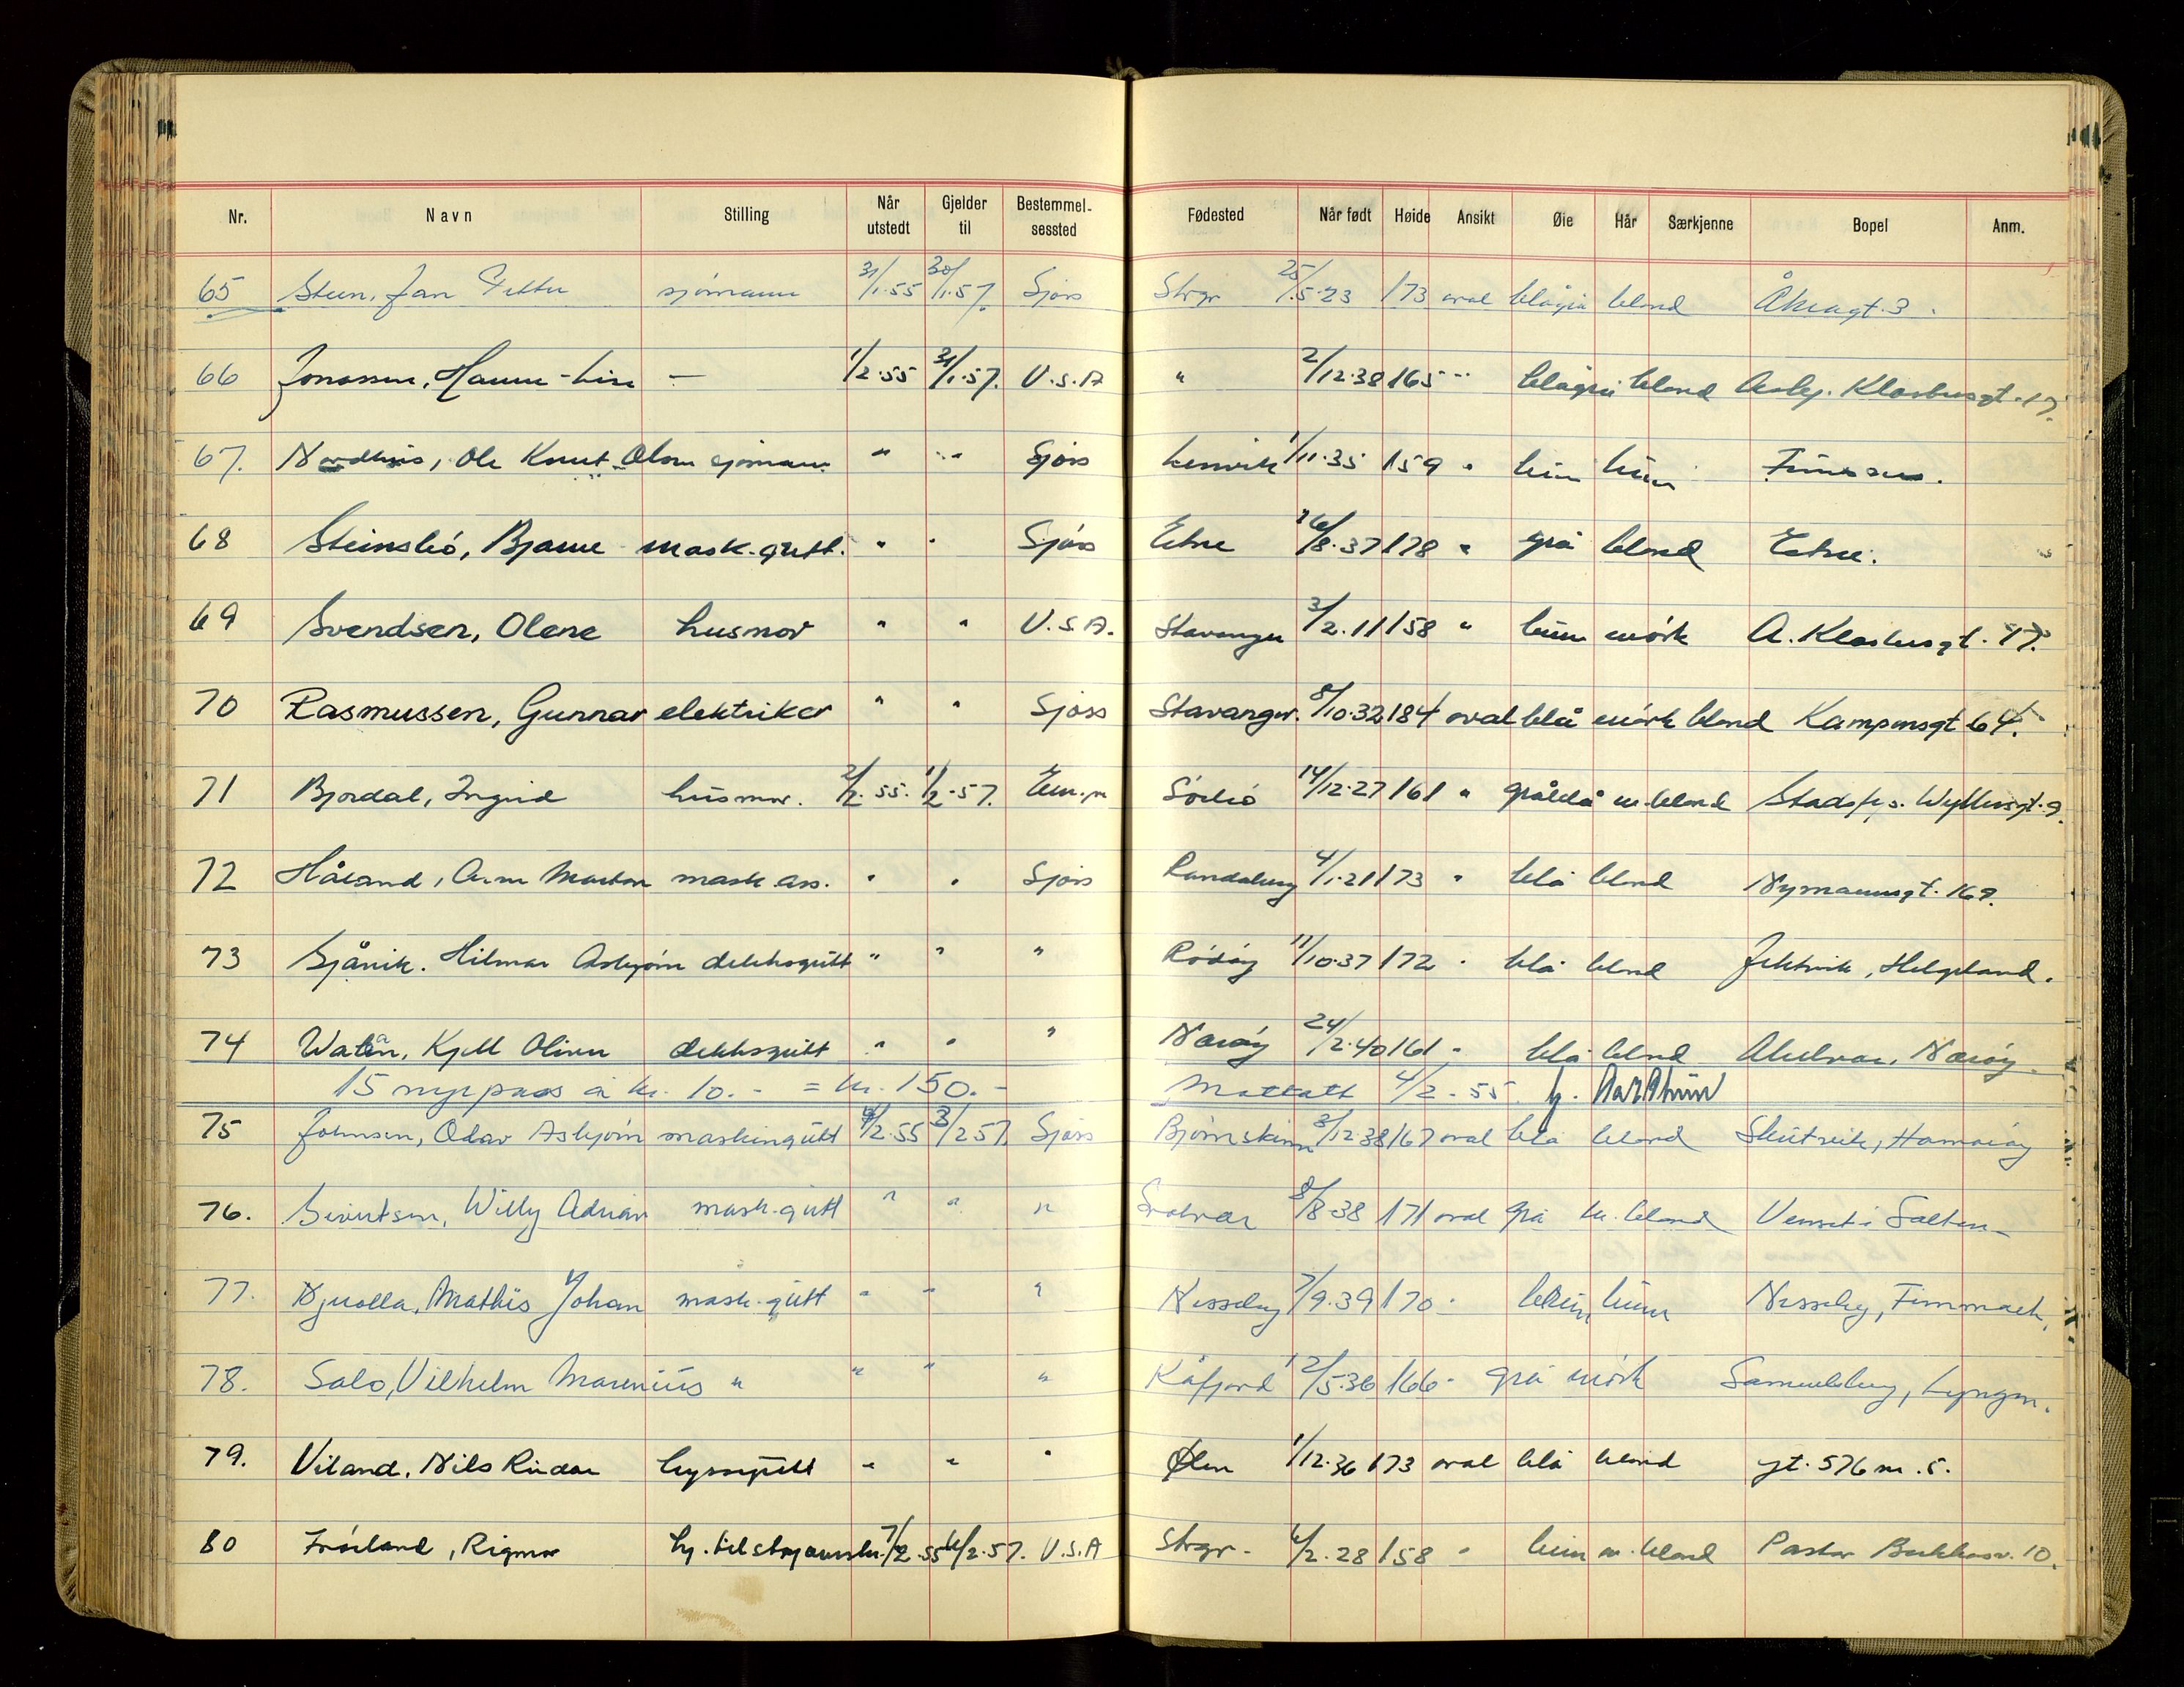 Nr. Navn Stilling Når utstedt Gjelder til Bestemmelsessted Fødested Når født Høide Ansikt Øie Hår Særkjenne Bopel Anm.
65 Steen, Jan Petter sjömann 31/1.55 30/1.57. Sjøss Strgr 25/5.23 173 oval blågrå blond Åkragt. 3.
66 Jonassen, Hanne-Lise — 1/2.55 31/1.57. U.S.A " 2/12.38 165 " blågrå blond Asbj. Klostersgt. 17.
67. Ole Knut Olsen sjömann " " Sjøss Lenvik 1/11.35 159 " brun brun Finnsnes.
68 Steinsbö, Bjarne mask.gutt. " " Sjöss Etne 26/8.37 178 " grå blond Etne.
69 Svendsen, Olene husmor " " U.S.A. Stavanger 3/2.11 158 " brun mörk A. Klostersgt. 17.
70 Rasmussen, Gunnar elektriker " " Sjøss Stavanger. 8/10.32 184 oval blå mörk blond Kampensgt 64.
71 Bjordal, Ingrid husmor. 2/2.55. 1/2.57. Eur.p 14/12.27 161 " gråblå m.blond Stadsfys. Wyllersgt. 9.
72 Håland, Arne Morten mask.ass. " " Sjøss Randaberg 4/1.21 173 " blå blond Nymannsgt. 169.
73 Sjåvik. Hilmar Asbjörn dekksgutt " " " Rödöy 11/10.37 172 " blå blond Jektvik, Helgeland.
74 Kjell Oliver dekksgutt " " " Næröy 24/2.40 161 " blå blond Næröy.
15 nye pass à kr. 10.- = kr. 150.- Mottatt 4/2-55.
75 Johnsen, Odar Asbjörn maskingutt 4/2.55 3/2 57. Sjøss Bjørnskinn 3/12.38 167 oval blå blond Skutvik, Hamaröy
76. Sivertsen, Willy Adrian mask.gutt " " " Svolvær 8/8-38 171 oval grå m.blond Venset i Salten
77. Njuolla, Mathis Johan mask.gutt " " " Nesseby 7/9.39 170 " brun brun Nesseby, Finnmark.
78. Salo, Vilhelm Marenius " " " " Kåfjord 12/5.36 166 " grå mörk Samuelsberg, Lyngen.
79. Viland, Nils Reidar byssegutt " " " Ølen 1/12.36 173 oval blå blond gt. 576 nr. 5.
80 Fröiland, Rigmor 7/2.55 6/2.57. U.S.A Strgr. 6/2.28 158 " brun m.blond Pastor 10.